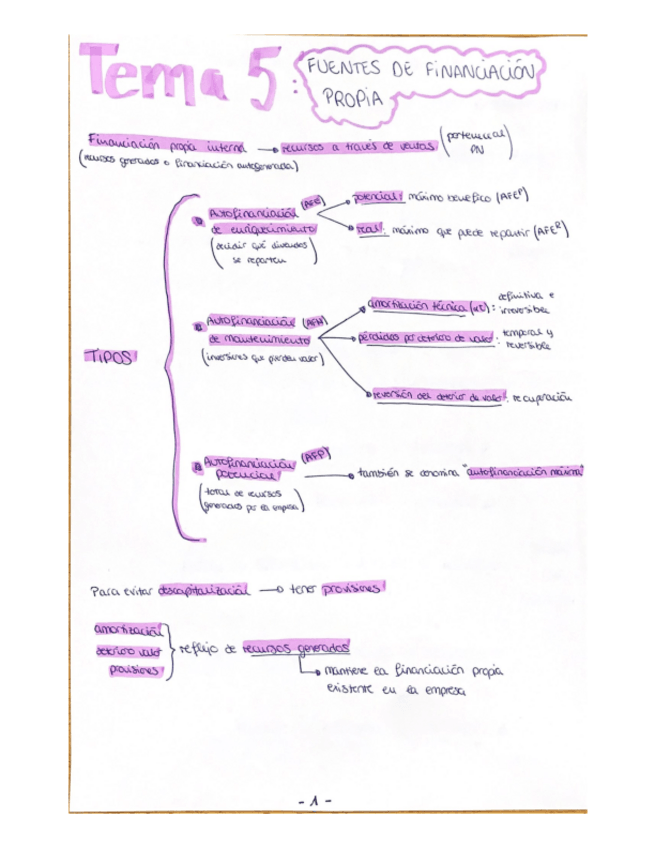 Tema 5: FUENTES DE FINANCIACIÓN
PROPIA
Financiación propia interna → recursos a través de ventas (pertenecen al PN)
(recursos generados o financiación autogenerada)
TIPOS
Autofinanciación (AFE)
de enriquecimiento
(decidir qué dividendos
se reparten)
potencial: máximo beneficio (AFEP)
real: máximo que puede repartir (AFER)
Autofinanciación (AFM)
de mantenimiento
(inversiones que pierden valor)
amortización técnica (AT): definitiva e
irreversible
pérdidas por deterioro de valor: temporal y
reversible
reversión del deterior de valor: recuperación
Autofinanciación (AFP)
potencial
(total de recursos
generados por la empresa)
→ también se denomina "autofinanciación máxima"
Para evitar descapitalización → tener provisiones
amortización
deterioro valor
provisiones
reflejo de recursos generados
→ mantiene la financiación propia
existente en la empresa
- 1 -